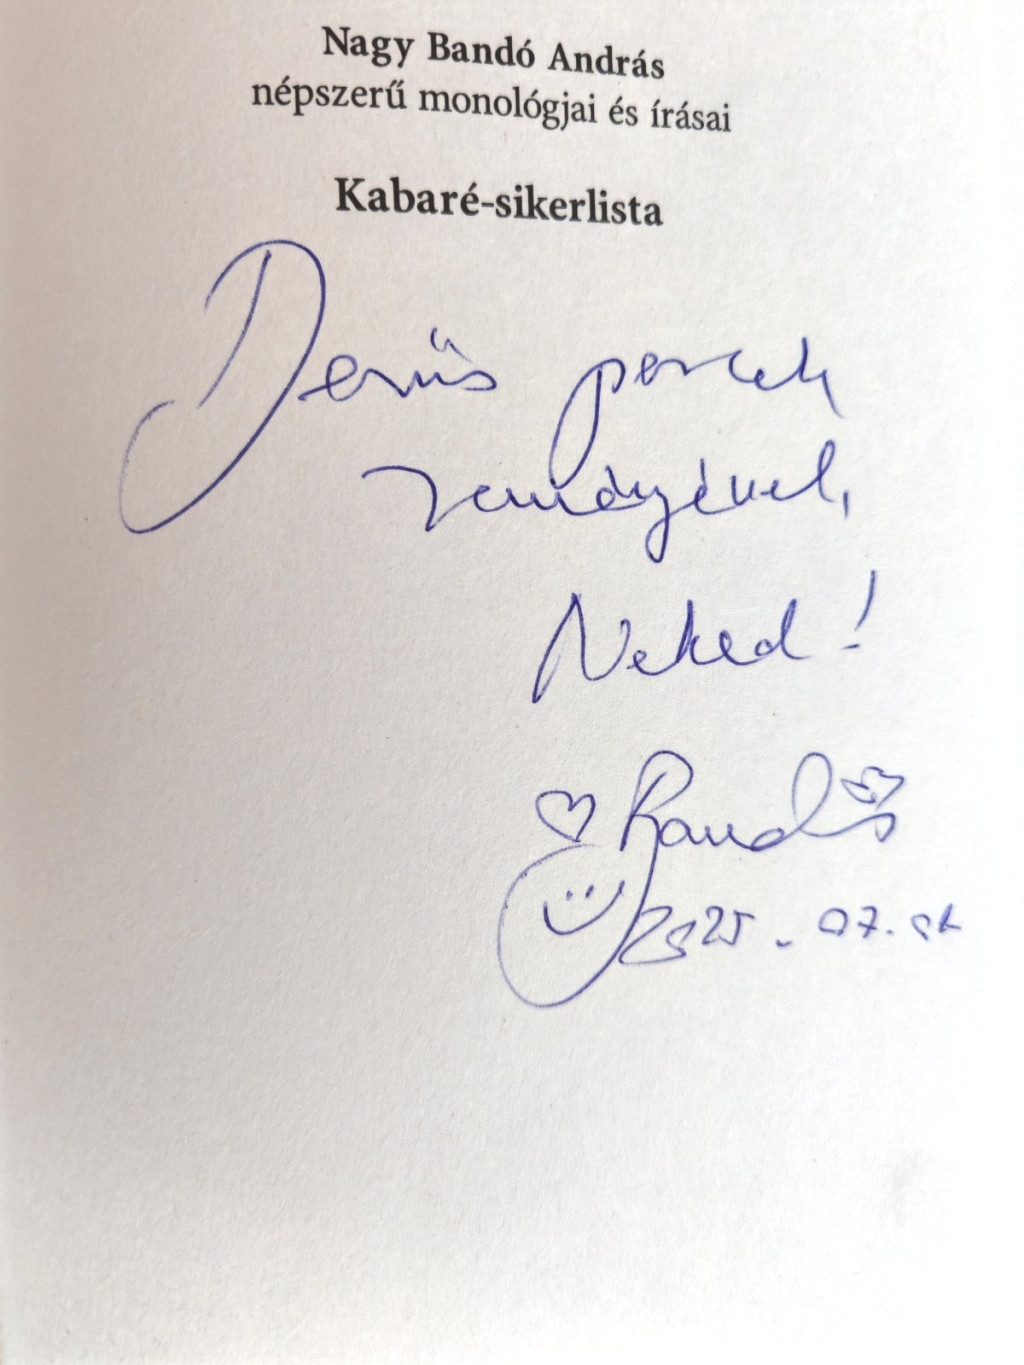 Nagy Bandó András
népszerű monológjai és írásai
Kabaré-sikerlista
Derűs percek
reményével,
Neked!
Bandó
2025. 07.